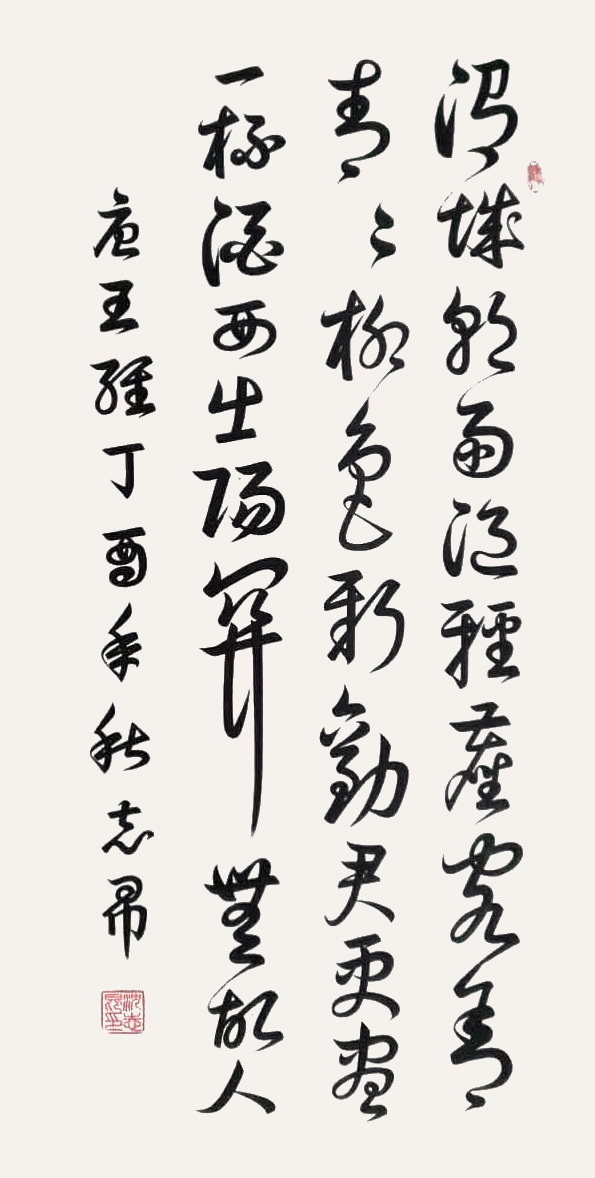 渭城朝雨浥輕塵客舍
青々柳色新勸君更盡
一杯酒西出陽關無故人
唐王維丁酉年秋志